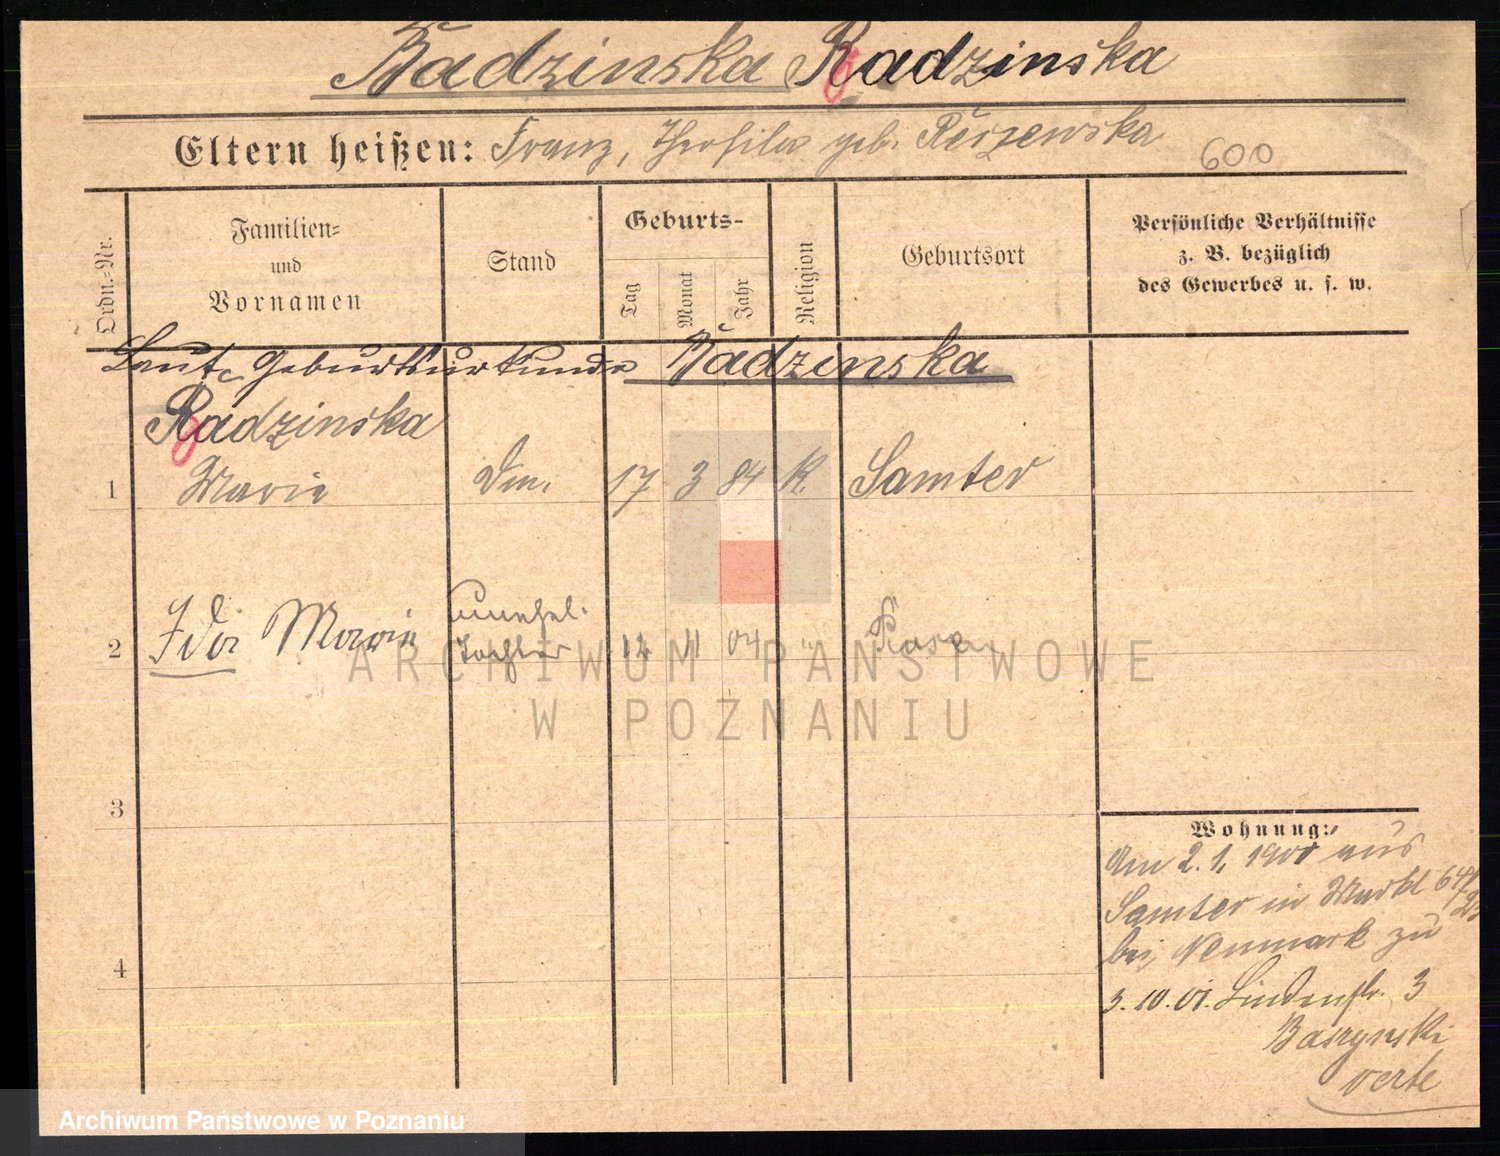 Radzinska Radzinska
Eltern heißen: Franz, Theofila geb. Rüszewska
600
Ordn.-Nr.
Familien-
und
Vornamen
Stand
Geburts-
Tag
Monat
Jahr
Religion
Geburtsort
Persönliche Verhältnisse
z. B. bezüglich
des Gewerbes u. s. w.
Laut Geburtsurkunde Radzinska
Radzinska
1 Marie 17 3 84 K. Samter
unehel.
2 Ida Marie Tochter 12 11 04 " Posen
3
4
Wohnung:
Am 2.1.1901 aus
Samter in Markt 64/
bei Neumark zu
3.10.01. Lindenstr. 3
Baszynski
verte
ARCHIWUM PAŃSTWOWE
W POZNANIU
Archiwum Państwowe w Poznaniu